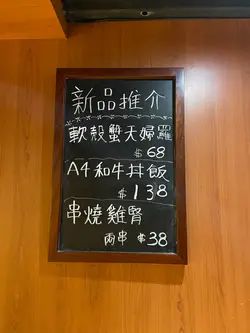 新品推介
軟殼蟹天婦羅
$68
A4和牛丼飯
$138
串燒雞腎
兩串 $38